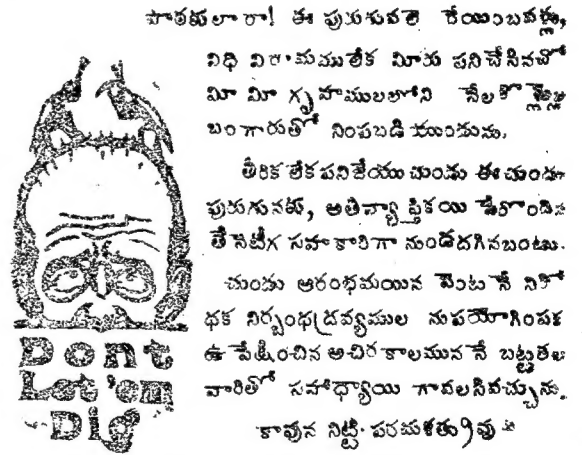 పాఠకులారా! ఈ పురుగువలె రేయింబవళ్లు,
నిధి విరామములేక మీరు పనిచేసినచో
మీ మీ గృహములలోని నేలకొల్లెల్ల
బంగారుతో నింపబడి యుండును.
తీరిక లేకపనిజేయు చుండు ఈ చుండు
పురుగునకు, అతివ్యాప్తికయి పేరొందిన
తేనెటీగ సహకారిగా నుండదగినబంటు.
చుండు ఆరంభమయిన వెంటనే నిరో
ధక నిర్బంధద్రవ్యముల నుపయోగింపక
ఉపేక్షించిన అచిరకాలముననే బట్టతల
వారితో సహాధ్యాయి గావలసివచ్చును.
కావున నిట్టి పరమశత్రువు
Dont
Let 'em
Dig